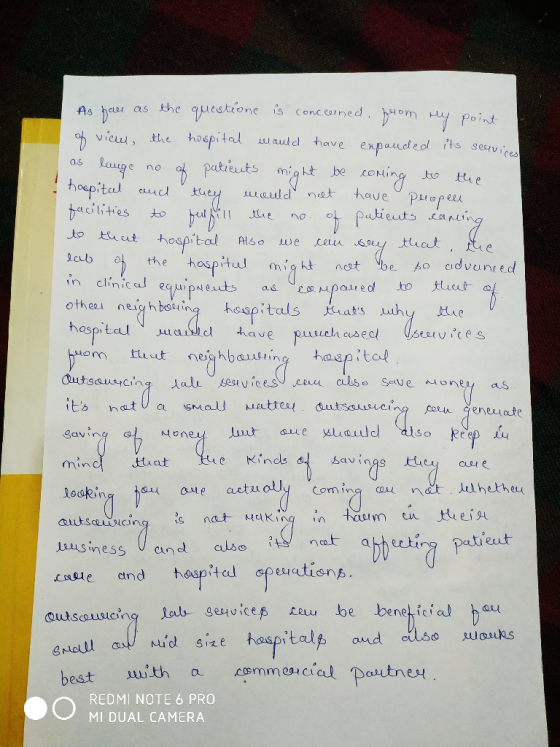 As far as the questione is concerned. from My point
of view, the hospital would have expanded its services
as large no. of patients might be coming to the
hospital and they would not have proper
facilities to fulfill the no. of patients coming
to that hospital Also we can say that, the
lab of the hospital might not be so advanced
in clinical equipments as compared to that of
other neighboring hospitals that's why the
hospital would have purchased services
from that neighbouring hospital.
Outsourcing lab services can also save money as
it's not a small matter. Outsourcing can generate
saving of money but one should also keep in
mind that the kinds of savings they are
looking for are actually coming or not. Whether
outsourcing is not making in harm in their
business and also its not affecting patient
care and hospital operations.
Outsourcing lab services can be beneficial for
small or mid size hospitals and also works
best with a commercial partner.
REDMI NOTE 6 PRO
MI DUAL CAMERA